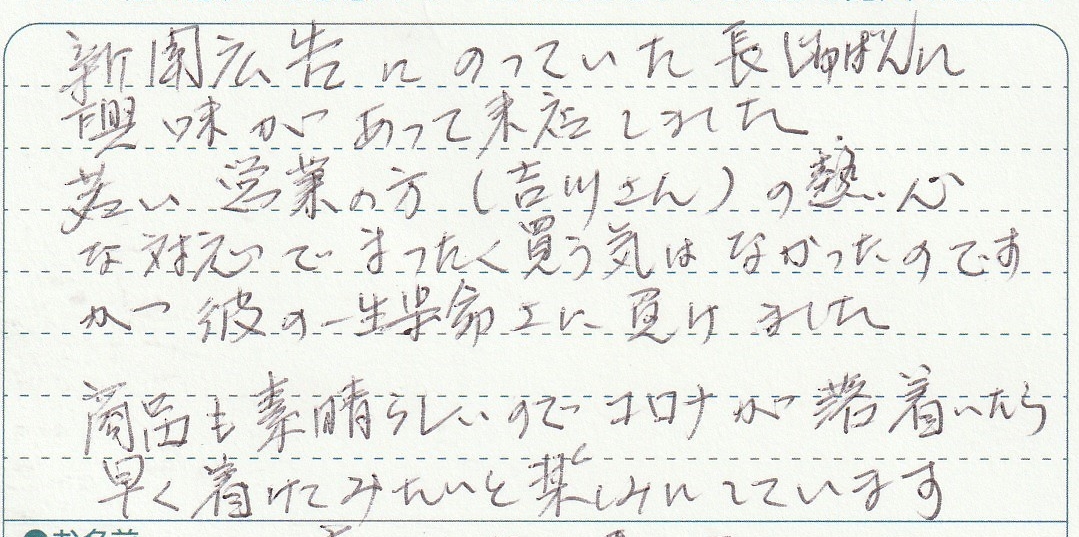 新聞広告にのっていた長じゅばんに
興味があって来店しました。
若い営業の方(吉川さん)の熱心
な対応でまったく買う気はなかったのです
が彼の一生懸命さに負けました
商品も素晴らしいのでコロナが落着いたら
早く着けてみたいと楽しみにしています
●お名前